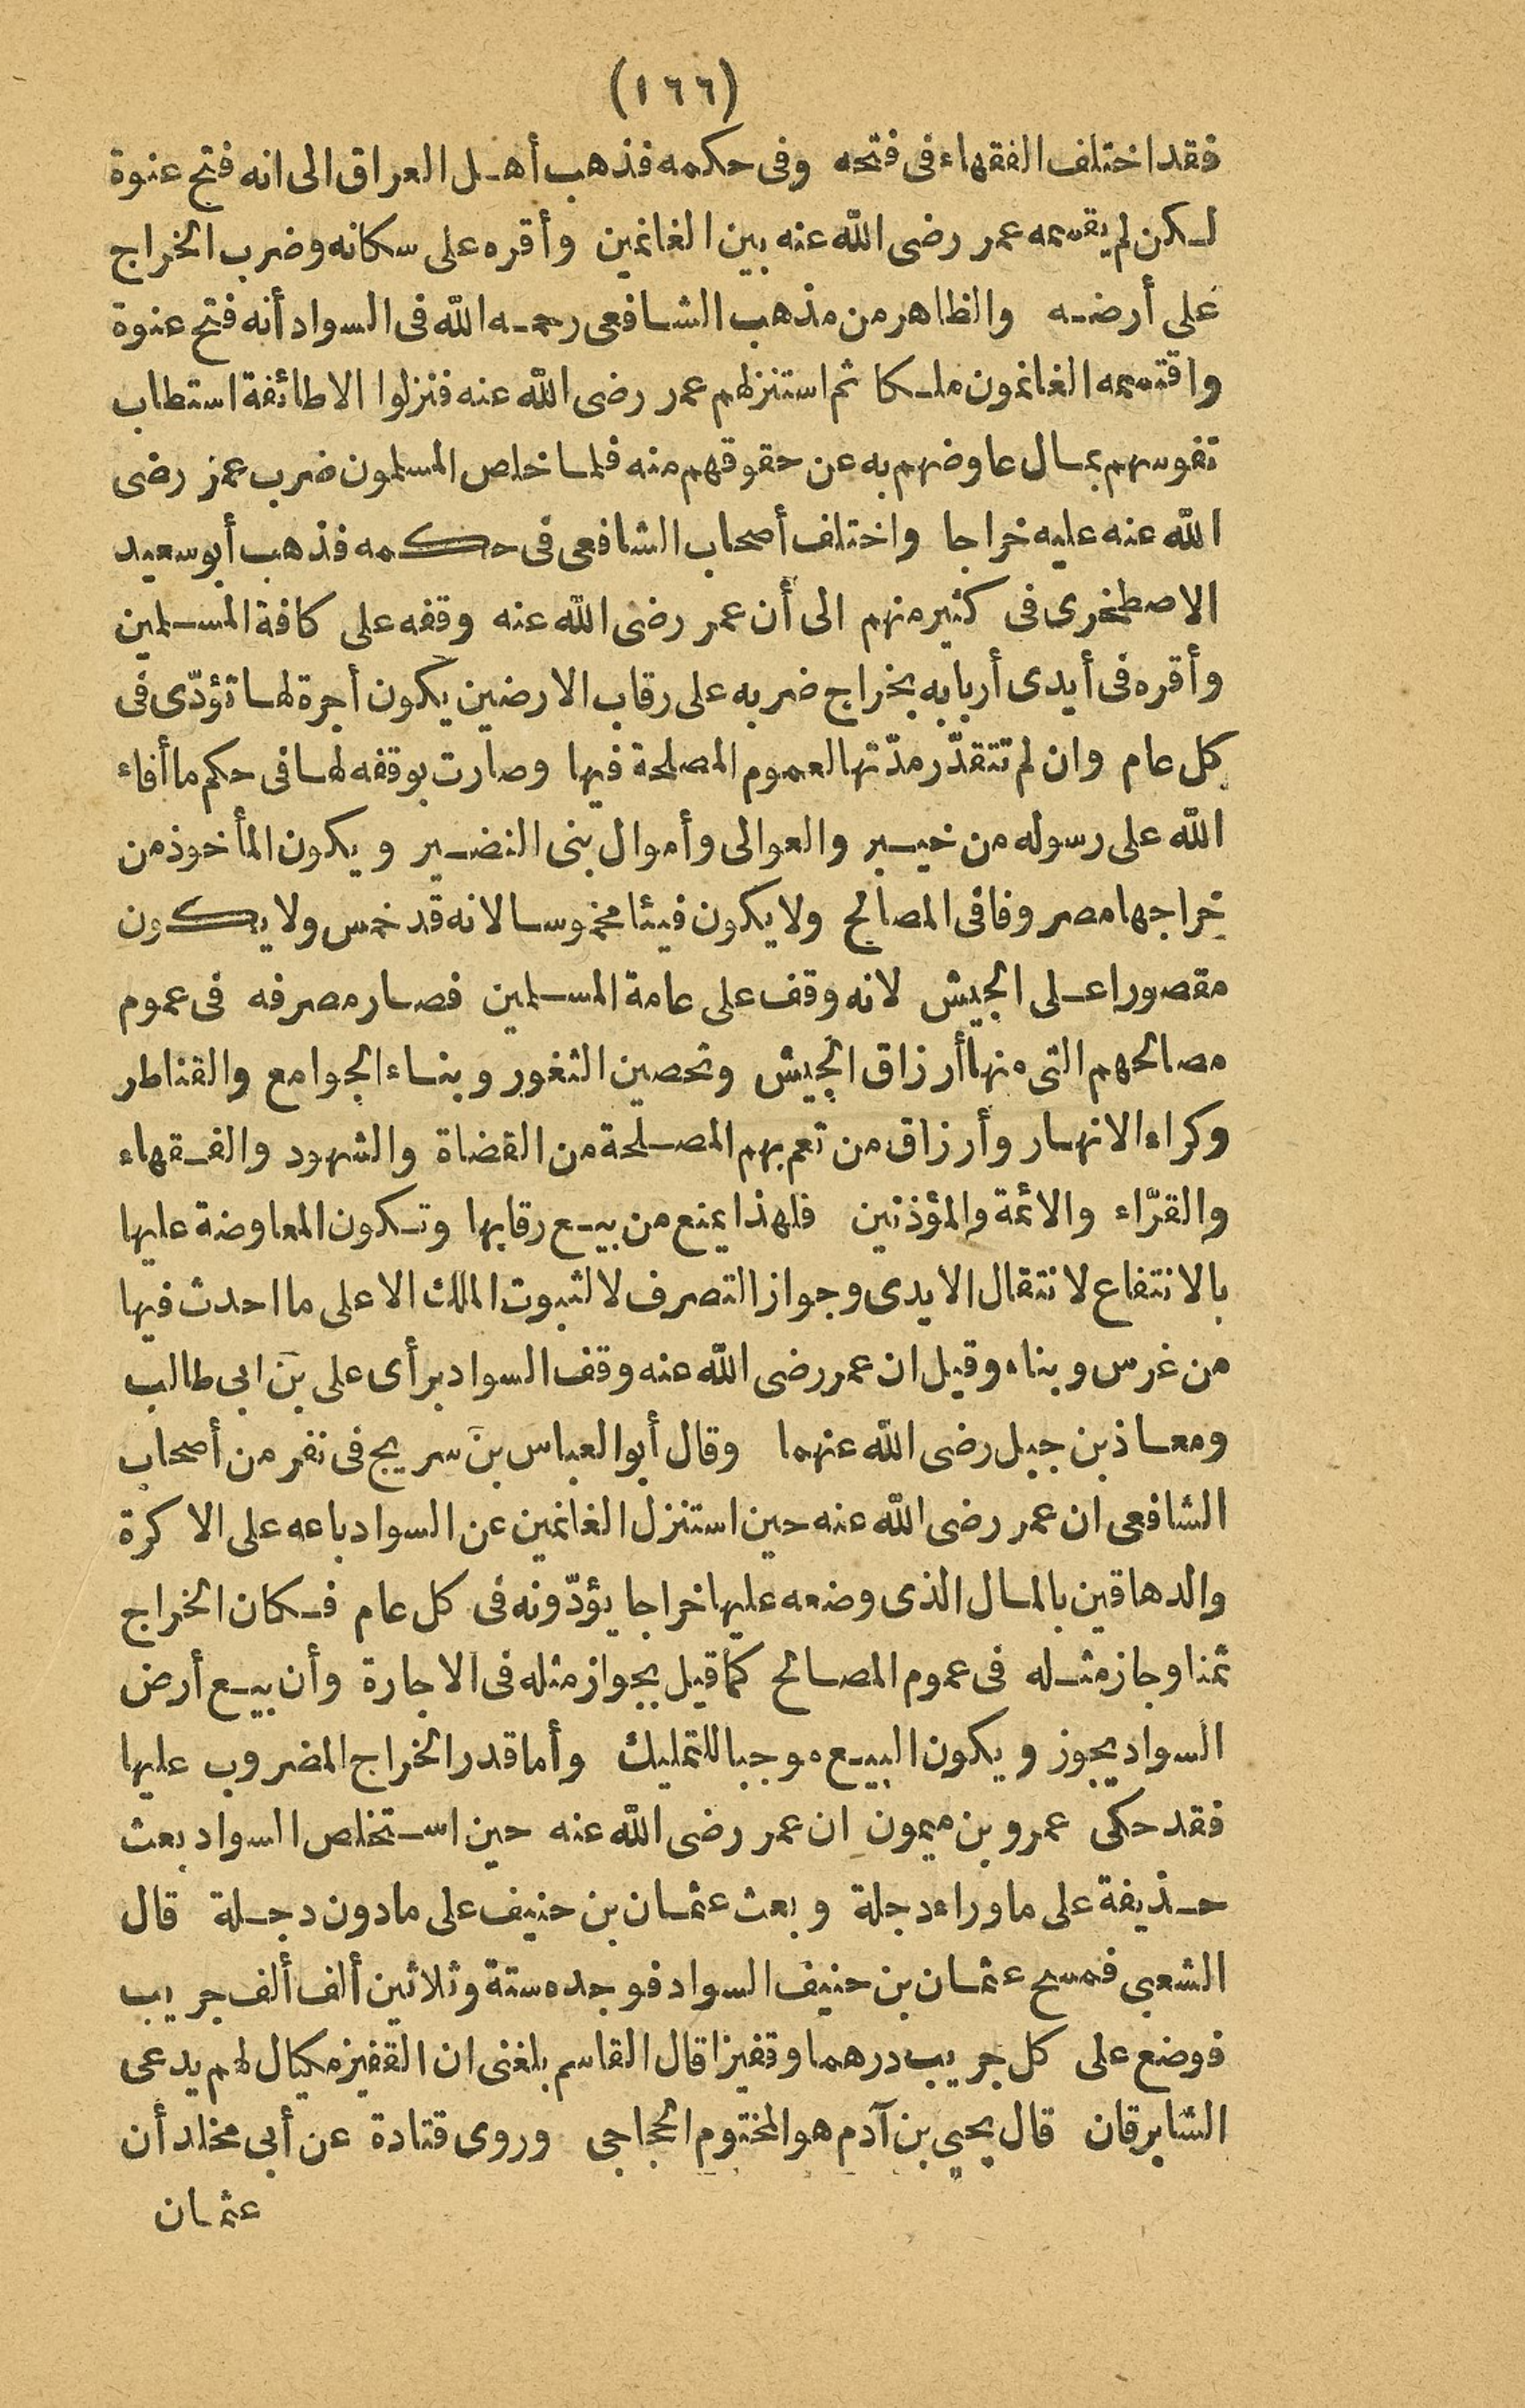 (١٦٦)
فقد اختلف الفقهاء فى فتحه وفى حكمه فذهب أهل العراق الى انه فتح عنوة
لكن لم يقسمه عمر رضى اللّه عنه بين الغانمين وأقره على سكانه وضرب الخراج
على أرضه والظاهر من مذهب الشافعى رحمه اللّه فى السواد أنه فتح عنوة
واقتسمه الغانمون ملكا ثم استنزلهم عمر رضى اللّه عنه فنزلوا الا طائفة استطاب
نفوسهم بمال عاوضهم به عن حقوقهم منه فلما خلص المسلمون ضرب عمر رضى
اللّه عنه عليه خراجا واختلف أصحاب الشافعى فى حكمه فذهب أبو سعيد
الاصطخرى فى كثير منهم الى أن عمر رضى اللّه عنه وقفه على كافة المسلمين
وأقره فى أيدى أربابه بخراج ضربه على رقاب الارضين يكون أجرة لها تؤدّى فى
كل عام وان لم تتقدّر مدّتها لعموم المصلحة فيها وصارت بوقفه لها فى حكم ما أفاء
اللّه على رسوله من خيبر والعوالى وأموال بنى النضير ويكون المأخوذ من
خراجها مصروفا فى المصالح ولا يكون فيئا مخموسا لانه قد خمس ولا يكون
مقصورا على الجيش لانه وقف على عامة المسلمين فصار مصرفه فى عموم
مصالحهم التى منها أرزاق الجيش وتحصين الثغور وبناء الجوامع والقناطر
وكراء الانهار وأرزاق من تعم بهم المصلحة من القضاة والشهود والفقهاء
والقرّاء والائمة والمؤذنين فلهذا يمنع من بيع رقابها وتكون المعاوضة عليها
بالانتفاع لانتقال الايدى وجواز التصرف لا لثبوت الملك الا على ما احدث فيها
من غرس وبناء وقيل ان عمر رضى اللّه عنه وقف السواد برأى على بن ابى طالب
ومعاذ بن جبل رضى اللّه عنهما وقال أبو العباس بن سريج فى نفر من أصحاب
الشافعى ان عمر رضى اللّه عنه حين استنزل الغانمين عن السواد باعه على الاكرة
والدهاقين بالمال الذى وضعه عليها خراجا يؤدّونه فى كل عام فكان الخراج
ثمنا وجاز مثله فى عموم المصالح كما قيل بجواز مثله فى الاجارة وأن بيع أرض
السواد يجوز ويكون البيع موجبا للتمليك وأما قدر الخراج المضروب عليها
فقد حكى عمرو بن ميمون ان عمر رضى اللّه عنه حين استخلص السواد بعث
حذيفة على ما وراء دجلة وبعث عثمان بن حنيف على ما دون دجلة قال
الشعبى فمسح عثمان بن حنيف السواد فوجده ستة وثلاثين ألف ألف جريب
فوضع على كل جريب درهما وقفيزا قال القاسم بلغنى ان القفيز مكيال لهم يدعى
الشابرقان قال يحيى بن آدم هو المختوم الحجاجى وروى قتادة عن أبى مخلد أن
عثمان